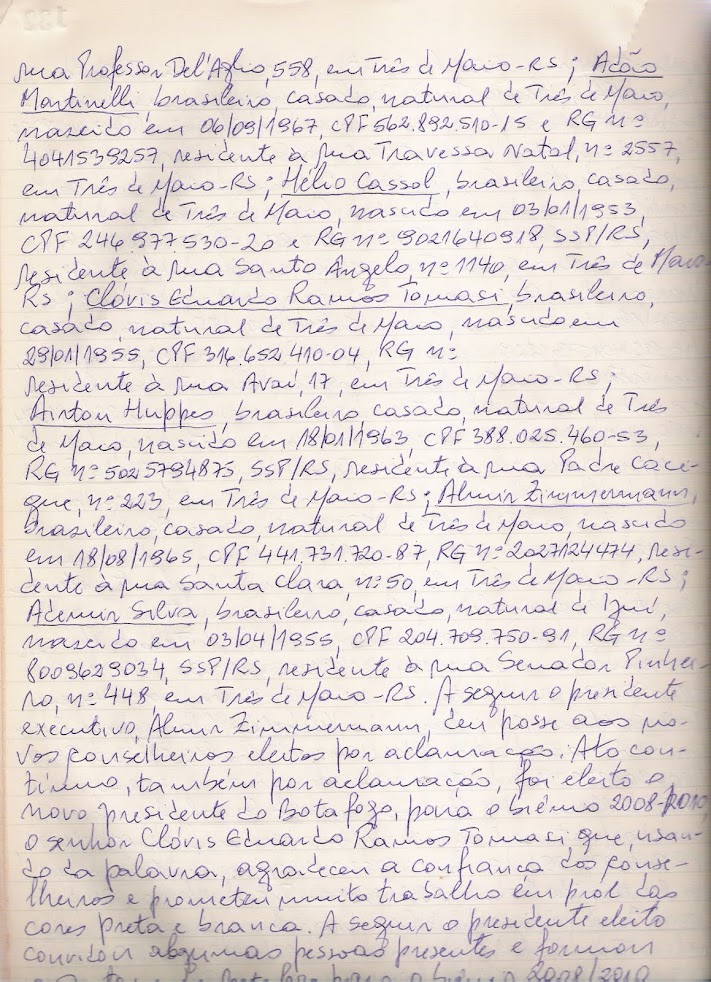 rua Professor Del'Aglio, 558, em Três de Maio-RS; Adão
Martinelli, brasileiro, casado, natural de Três de Maio,
nascido em 06/09/1967, CPF 562.892.510-15 e RG nº
4041539257, residente à rua Travessa Natal, nº 2557,
em Três de Maio-RS; Hélio Cassol, brasileiro, casado,
natural de Três de Maio, nascido em 03/01/1953,
CPF 246.977530-20 e RG nº 9021640918, SSP/RS,
residente à rua Santo Ângelo, nº 1140, em Três de Maio-
RS; Clóvis Eduardo Ramos Tomasi, brasileiro,
casado, natural de Três de Maio, nascido em
29/01/1955, CPF 316.652.410-04, RG nº
residente à rua Avaí, 17, em Três de Maio-RS;
Airton Huppes, brasileiro casado, natural de Três
de Maio, nascido em 18/01/1963, CPF 388.025.460-53,
RG nº 5025794875, SSP/RS, residente à rua Padre Caci-
que, nº 223, em Três de Maio-RS; Almir Zimmermann,
brasileiro, casado, natural de Três de Maio, nascido
em 18/08/1965, CPF 441.731.720-87, RG nº 2027124474, resi-
dente à rua Santa Clara, nº 50, em Três de Maio-RS;
Ademir Silva, brasileiro, casado, natural de Ijuí,
nascido em 03/04/1955, CPF 204.709.750-91, RG nº
8009629034, SSP/RS, residente à rua Senador Pinhei-
ro, nº 448, em Três de Maio-RS. A seguir o presidente
executivo, Almir Zimmermann, deu posse aos no-
vos conselheiros eleitos por aclamação. Ato con-
tínuo, também por aclamação, foi eleito o
novo presidente do Botafogo, para o biênio 2008-2010,
o senhor Clóvis Eduardo Ramos Tomasi, que, usan-
do da palavra, agradeceu a confiança dos conse-
lheiros e prometeu muito trabalho em prol das
cores preta e branca. A seguir o presidente eleito
convidou algumas pessoas presentes e formou
para o biênio 2008/2010